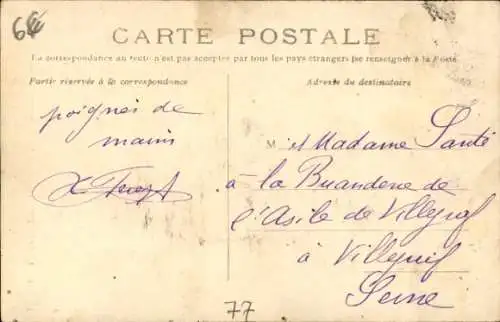 6€
CARTE POSTALE
La correspondance au recto n'est pas acceptée par tous les pays étrangers (se renseigner à la Poste)
Partie réservée à la correspondance
Adresse du destinataire
poignés de
mains
M et Madame Santé
à la Buanderie de
l'Asile de Villejuif
à Villejuif
Seine
77